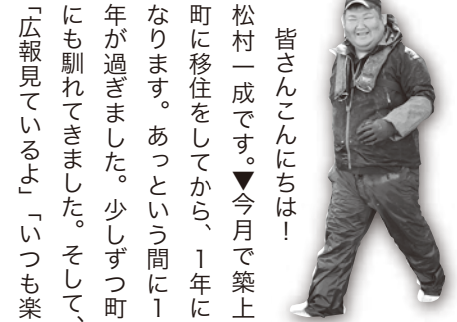 皆さんこんにちは！
松村一成です。▼今月で築上
町に移住をしてから、1年に
なります。あっという間に1
年が過ぎました。少しずつ町
にも馴れてきました。そして、
「広報見ているよ」「いつも楽